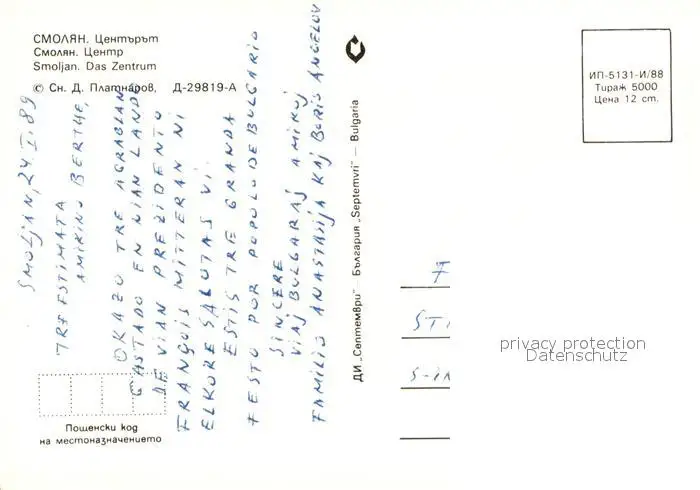 СМОЛЯН. Центърът
Смолян. Центр
Smoljan. Das Zentrum
© Сн. Д. Платнаров, Д-29819-А
SMOLJAN, 24.I.89
TRE ESTIMATA
AMIKINO BERTHE,
OKAZE TRE AGRABLAN
GASTADO EN NIAN LANDO
DE VIAN PREZIDENTO
FRANÇOIS MITTERAN NI
ELKORE SALUTAS VI.
ESTIS TRE GRANDA
FESTO POR POPOLO DE BULGARIO
SINCERE
VIAJ BULGARAJ AMIKOJ
FAMILIO ANASTASIJA KAJ BORIS ANGELOV
Пощенски код
на местоназначението
ДИ „Септември" — България „Septemvri" — Bulgaria
ИП-5131-И/88
Тираж 5000
Цена 12 ст.
privacy protection
Datenschutz